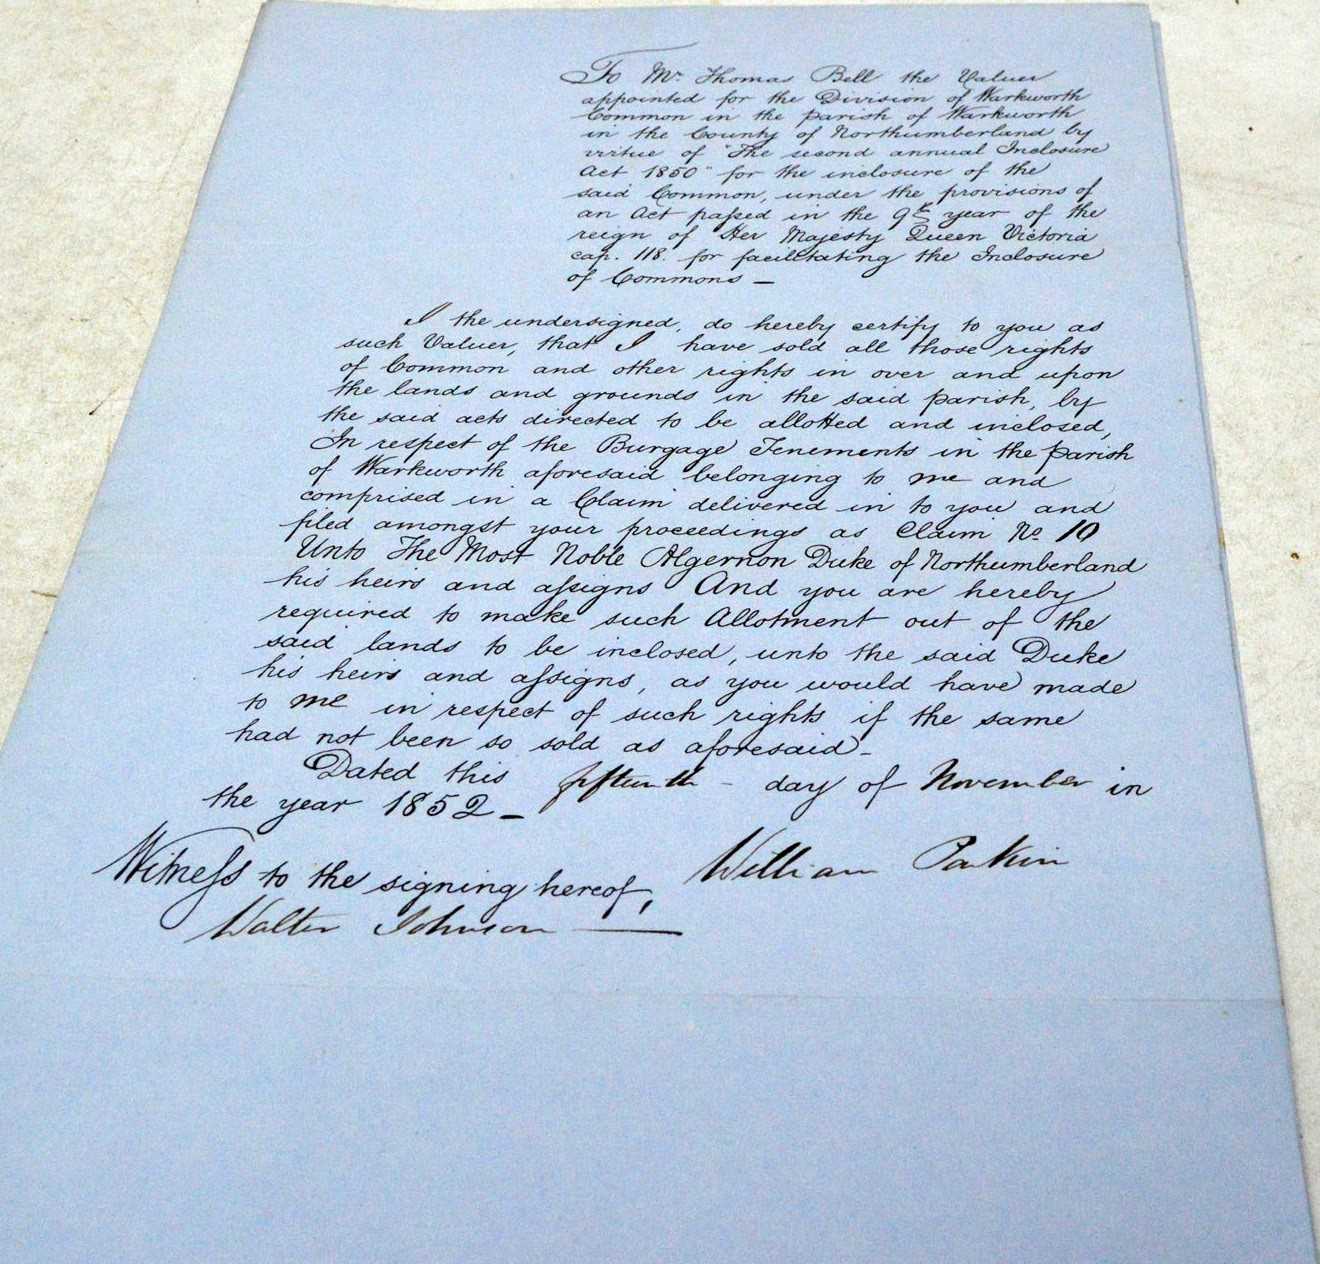 To Mr. Thomas Bell the Valuer
appointed for the Division of Warkworth
Common in the parish of Warkworth
in the County of Northumberland by
virtue of "The second annual Inclosure
Act 1850" for the inclosure of the
said Common, under the provisions of
an Act paſsed in the 9th year of the
reign of Her Majesty Queen Victoria
cap. 118. for facilitating the Inclosure
of Commons —
I the undersigned, do hereby certify to you as
such Valuer, that I have sold all those rights
of Common and other rights in over and upon
the lands and grounds in the said parish, by
the said acts directed to be allotted and inclosed,
In respect of the Burgage Tenements in the parish
of Warkworth aforesaid belonging to me and
comprised in a Claim delivered in to you and
filed amongst your proceedings as Claim No. 10
Unto The Most Noble Algernon Duke of Northumberland
his heirs and aſsigns And you are hereby
required to make such Allotment out of the
said lands to be inclosed, unto the said Duke
his heirs and aſsigns, as you would have made
to me in respect of such rights if the same
had not been so sold as aforesaid -
Dated this fifteenth - day of November in
the year 1852 -
William Parkin
Witneſs to the signing hereof,
Walter Johnson